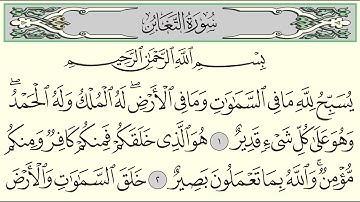 سُورَةُ التَّغَابُنِ
بِسْمِ اللَّهِ الرَّحْمَٰنِ الرَّحِيمِ
يُسَبِّحُ لِلَّهِ مَا فِي السَّمَٰوَٰتِ وَمَا فِي الْأَرْضِ ۖ لَهُ الْمُلْكُ وَلَهُ الْحَمْدُ ۖ
وَهُوَ عَلَىٰ كُلِّ شَيْءٍ قَدِيرٌ ١ هُوَ الَّذِي خَلَقَكُمْ فَمِنكُمْ كَافِرٌ وَمِنكُم
مُّؤْمِنٌ ۚ وَاللَّهُ بِمَا تَعْمَلُونَ بَصِيرٌ ٢ خَلَقَ السَّمَٰوَٰتِ وَالْأَرْضَ